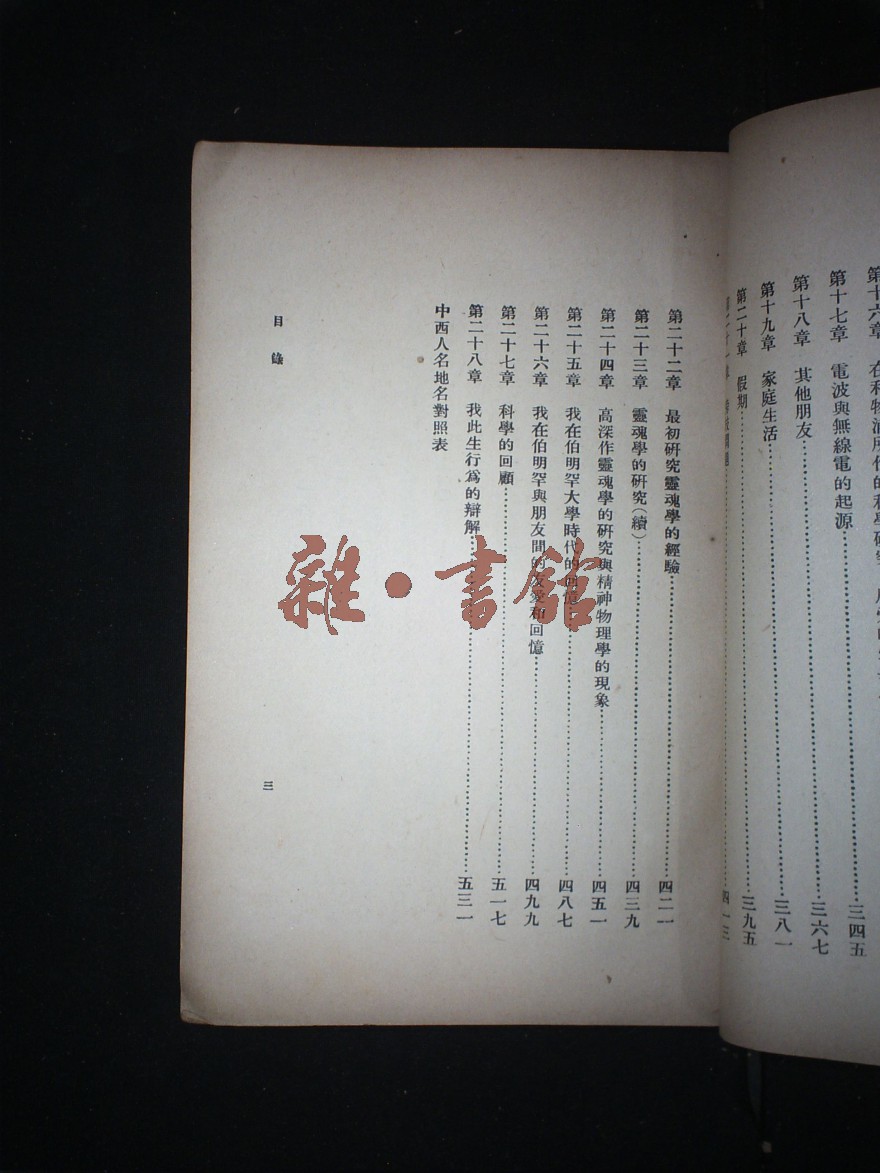 第十七章 電波與無線電的起源……三四五
第十八章 其他朋友……三六七
第十九章 家庭生活……三八一
第二十章 假期……三九五
四一三
第二十二章 最初研究靈魂學的經驗……四二一
第二十三章 靈魂學的研究(續)……四三九
第二十四章 高深作靈魂學的研究與精神物理學的現象……四五一
第二十五章 我在伯明罕大學時代的回憶……四八七
第二十六章 我在伯明罕與朋友間的友愛和回憶……四九九
第二十七章 科學的回顧……五一七
第二十八章 我此生行為的辯解……五三一
中西人名地名對照表
目錄
三
雜·書館